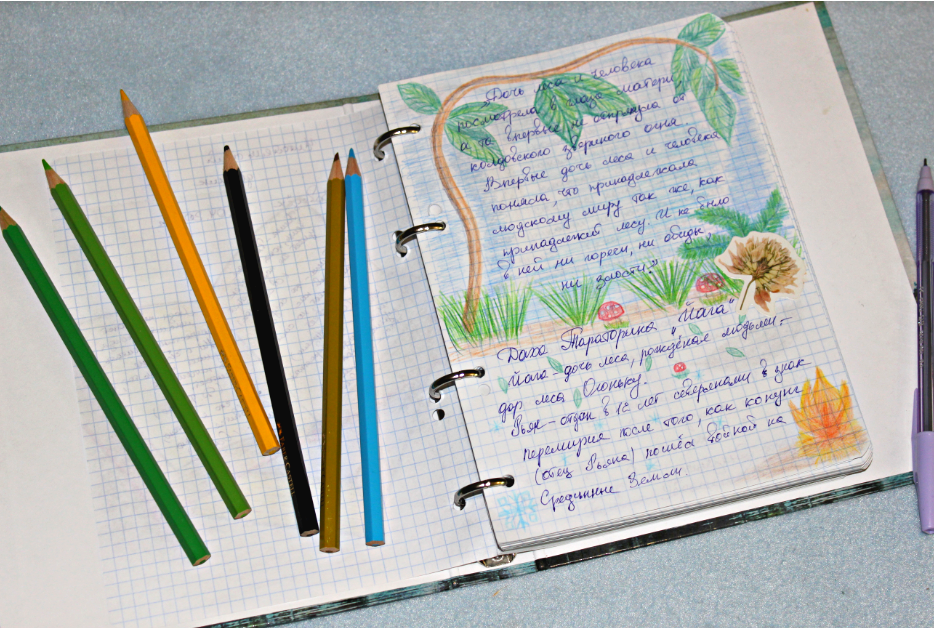 „Дочь леса и человека
посмотрела в глаза матери,
и та впервые не отпрянула от
колдовского звериного огня.
Впервые дочь леса и человека
поняла, что принадлежала
людскому миру так же, как
принадлежит лесу. И не было
в ней ни горести, ни обиды,
ни злости."
Даха Тараторина „Йага"
Йага – дочь леса, рождёная людьми –
дар леса Огоньку.
Рьян – отдан в 12 лет северянами в знак
перемирия после того, как конунг
(отец Рьяна) пошёл войной на
Срединные Земли.